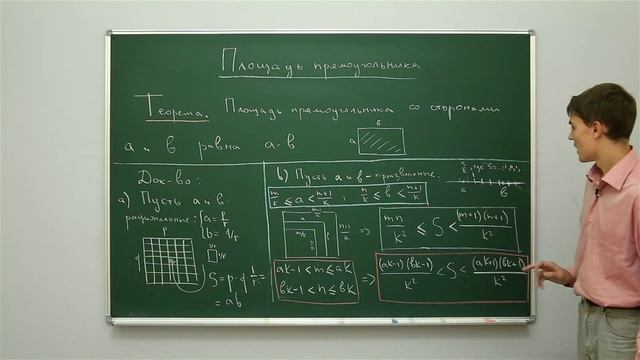 Площадь прямоугольника
Теорема. Площадь прямоугольника со сторонами
a и b равна a·b
b
a
Док-во:
a) Пусть a и b -
рациональные: {a = p/r
b = q/r
p
q
1/r
S = p·q 1/r² =
= ab
b) Пусть a и b - произвольные.
m/k ≤ a < (m+1)/k ; n/k ≤ b < (n+1)/k
a b
(m+1)/k
m/k
(n+1)/k
=> mn/k² ≤ S < (m+1)(n+1)/k²
ak-1 < m ≤ ak
bk-1 < n ≤ bk
=> (ak-1)(bk-1)/k² < S < (ak+1)(bk+1)/k²